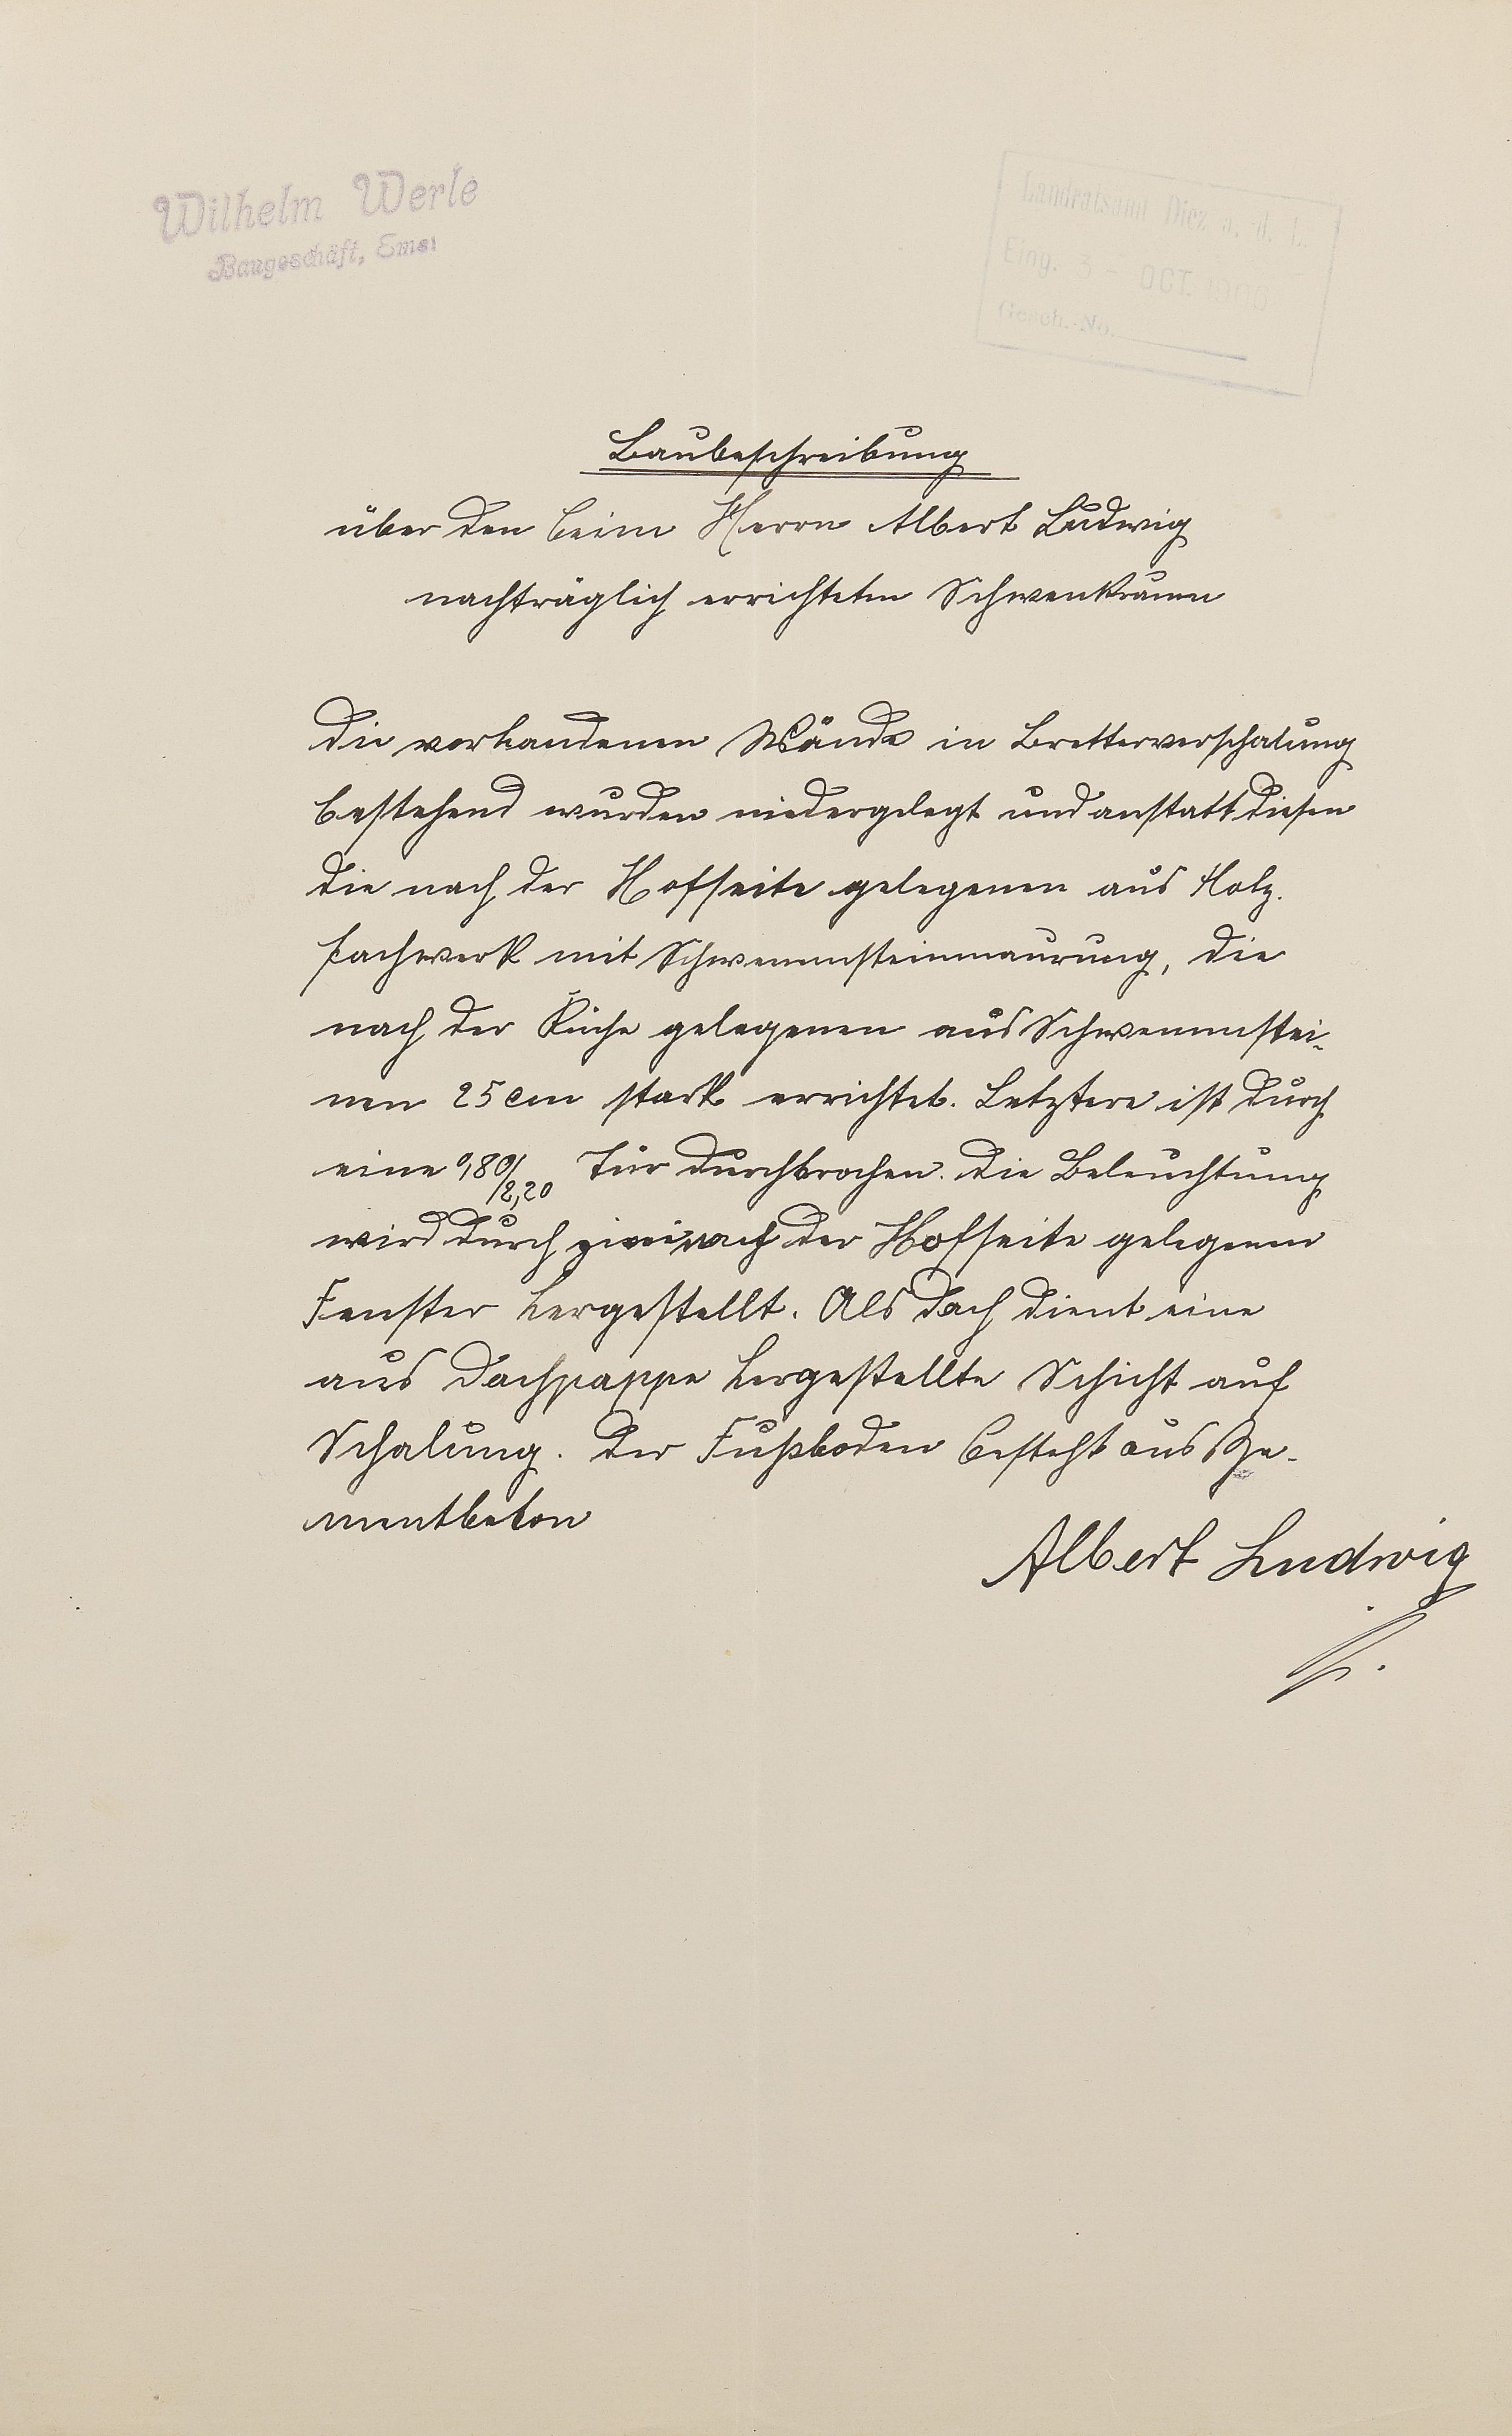 Wilhelm Werle
Baugeschäft, Ems
Landratsamt Diez a. d. L.
Eing. 3 - OCT.
Gesch.-No.
Baubeschreibung
über den beim Herrn Albert Ludwig
nachträglich errichteten Schwenkraum
Die vorhandenen Wände in Bretterverschalung
bestehend wurden niedergelegt und anstatt diesen
die nach der Hofseite gelegenen aus Holz.
fachwerk mit Schwemmsteinmaurung, die
nach der Küche gelegenen aus Schwemmstei-
nen 25 cm stark errichtet. Letztere ist durch
eine 0,80/2,20 Tür durchbrochen. Die Beleuchtung
wird durch zwei nach der Hofseite gelegenen
Fenster hergestellt. Als Dach dient eine
aus Dachpappe hergestellte Schicht auf
Schalung. Der Fußboden besteht aus Ze-
mentbeton
Albert Ludwig